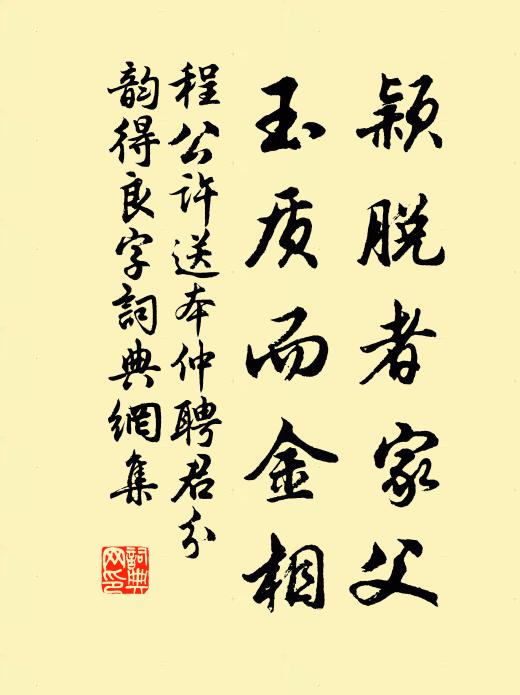 颖脱者家父
玉质而金相
程公许送本仲聘君分
韵得良字詞典網集
詞典网印